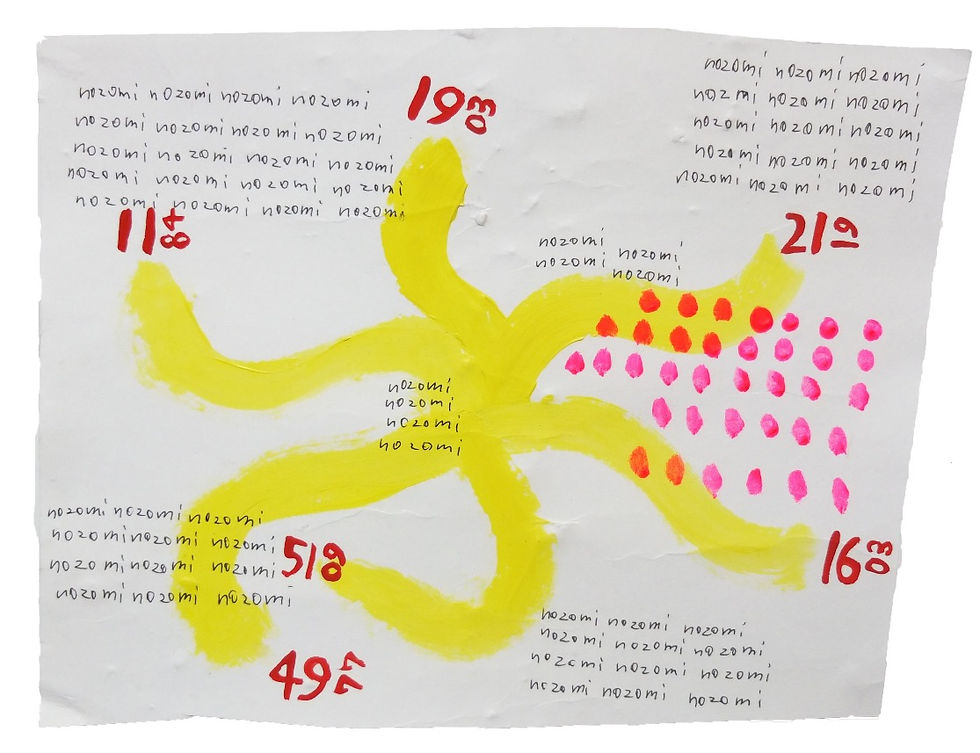 nozomi nozomi nozomi nozomi
nozomi nozomi nozomi nozomi
nozomi nozomi nozomi nozomi
nozomi nozomi nozomi nozomi
nozomi nozomi nozomi nozomi
19 03
nozomi nozomi nozomi
nozomi nozomi nozomi
nozomi nozomi nozomi
nozomi nozomi nozomi
nozomi nozomi nozomi
11 84
21 19
nozomi nozomi
nozomi nozomi
nozomi
nozomi
nozomi
nozomi
nozomi nozomi nozomi
nozomi nozomi nozomi
nozomi nozomi nozomi
nozomi nozomi nozomi
51 09
16 03
49 77
nozomi nozomi nozomi
nozomi nozomi nozomi
nozomi nozomi nozomi
nozomi nozomi nozomi